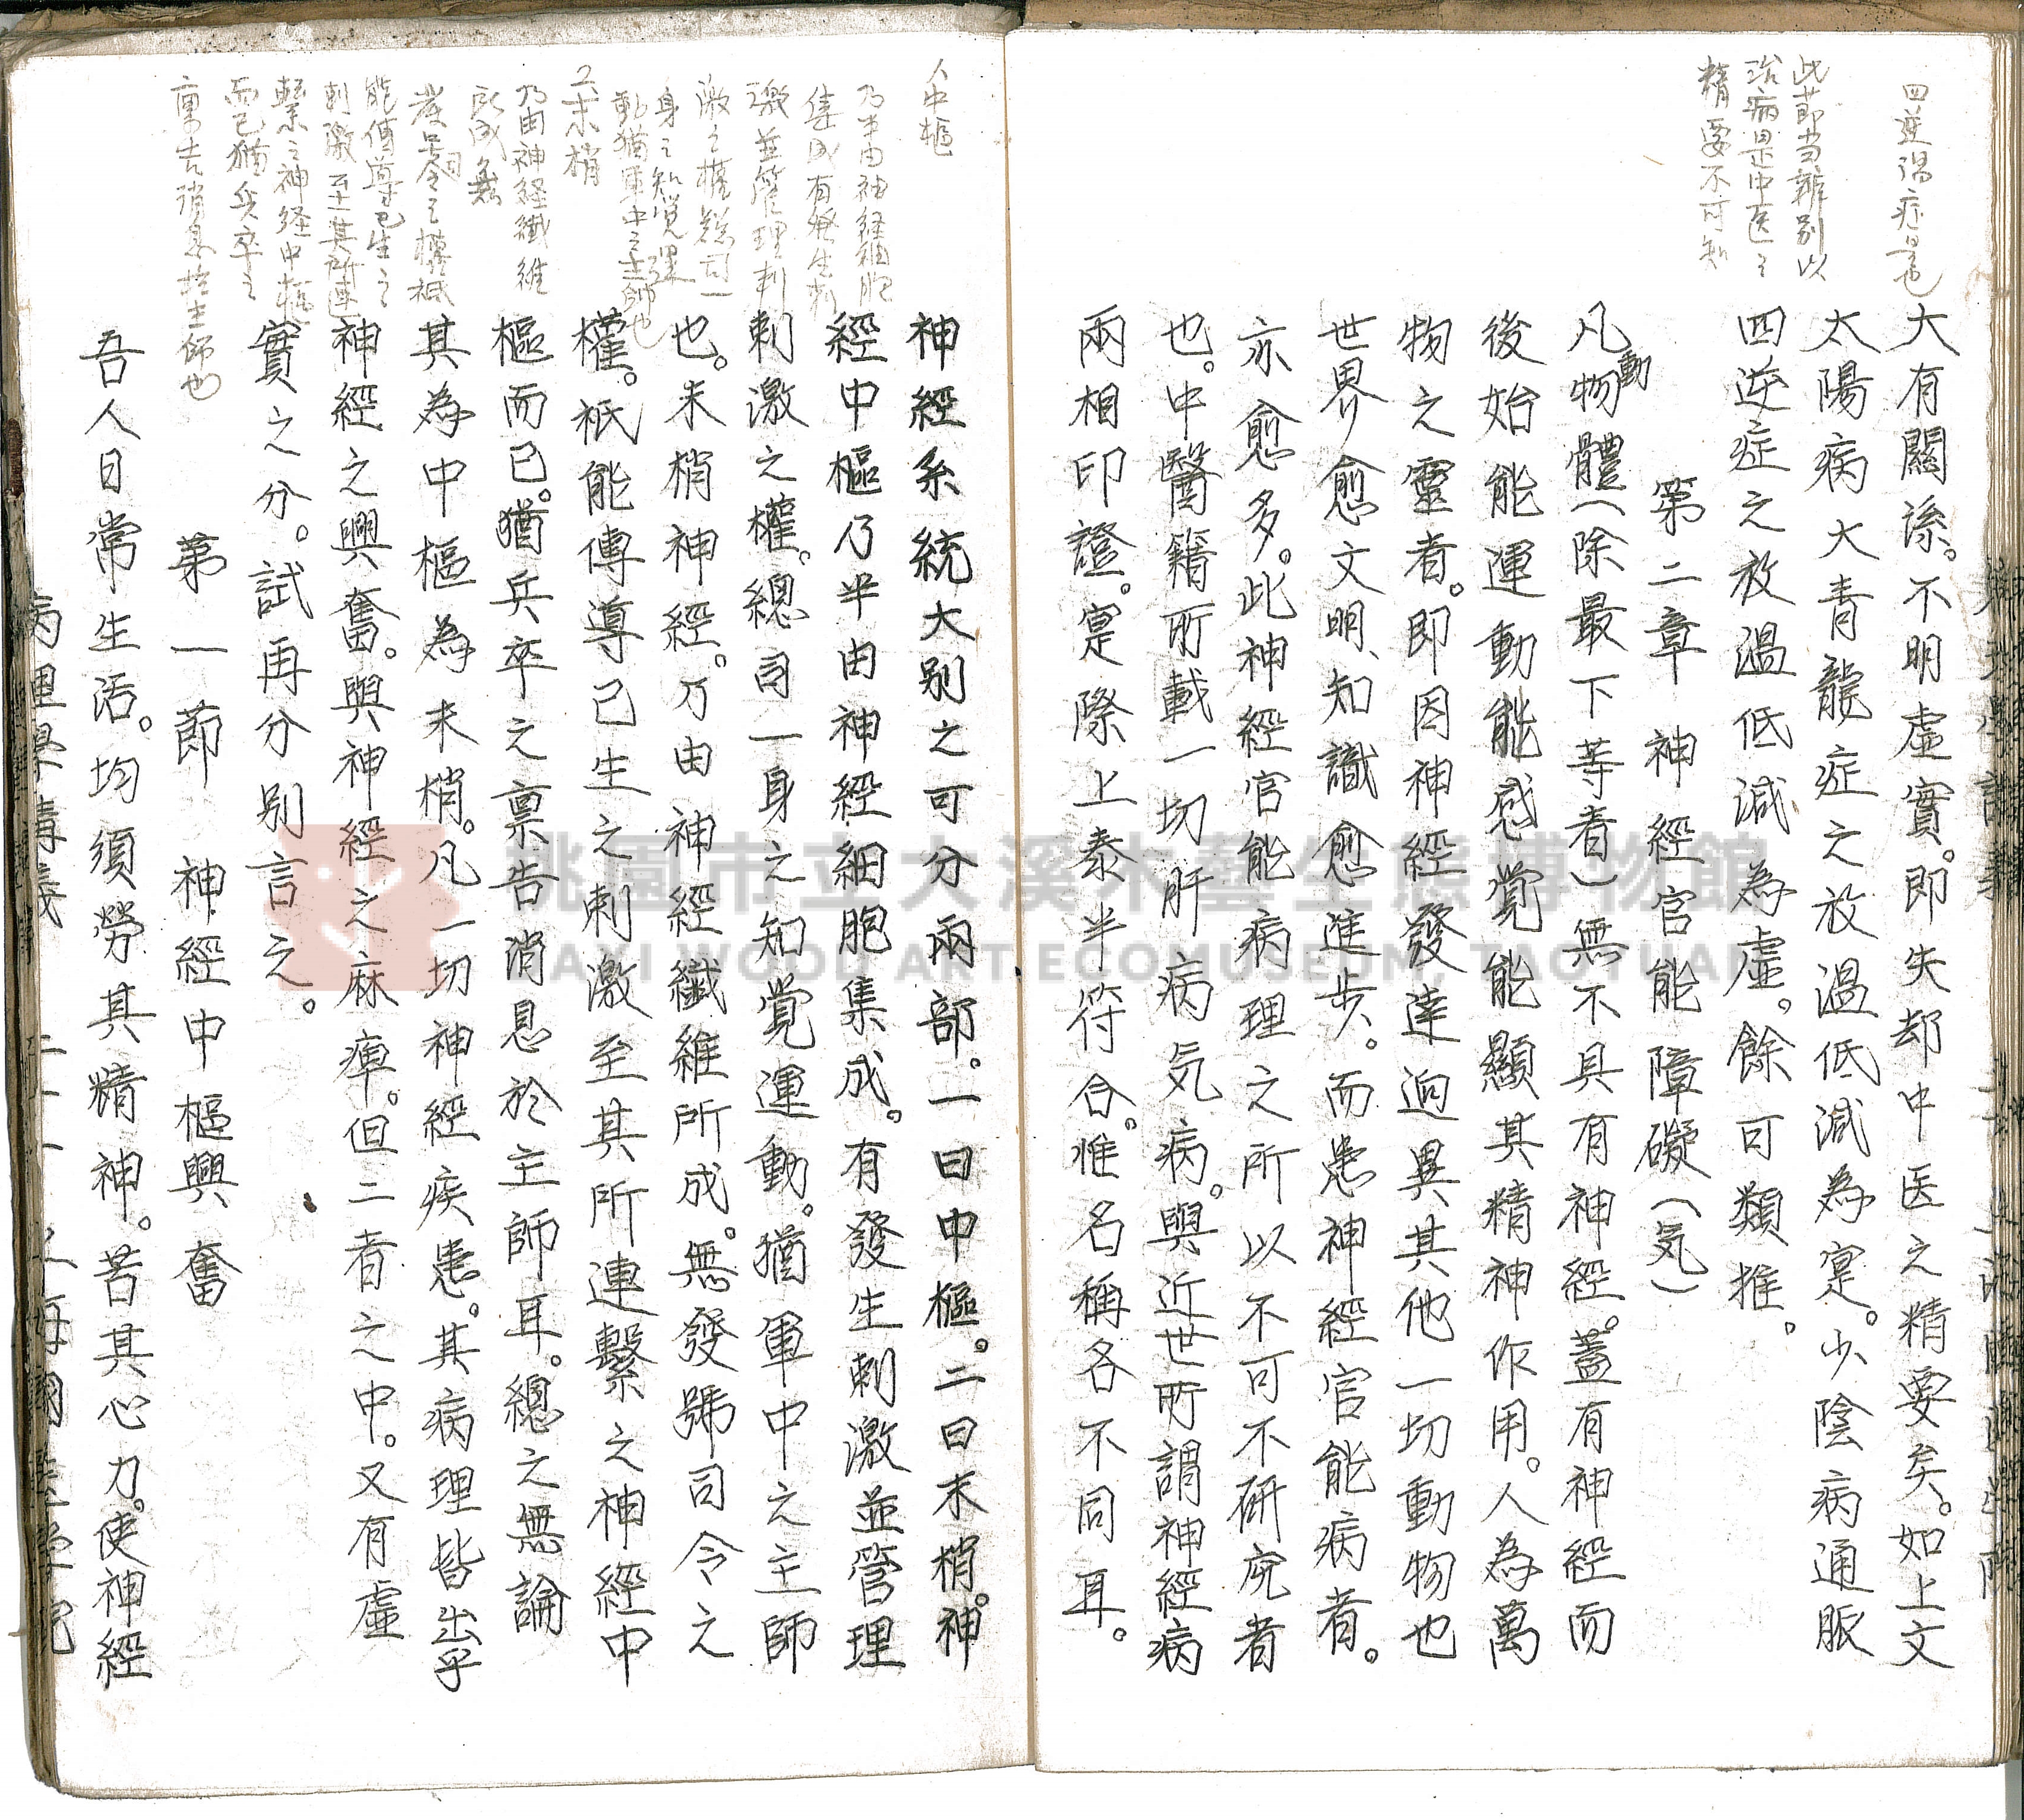 四逆湯症是也
此節当辨别以
治病是中医之
精要不可知
大有關係。不明虛實。即失却中医之精要矣。如上文
太陽病大青龍症之放溫低減為寔。少陰病通脈
四逆症之放溫低減為虛。餘可類推。
第二章 神經官能障礙(気)
凡動物體(除最下等者)無不具有神經。蓋有神經而
後始能運動能感覚能顯其精神作用。人為萬
物之靈者。即因神經發達迥異其他一切動物也
世界愈文明、知識愈進步。而患神經官能病者。
亦愈多。此神經官能病理之所以不可不研究者
也。中醫籍所載一切肝病気病。與近世所謂神經病
兩相印證。寔際上泰半符合。惟名稱各不同耳。
人中樞
乃半由神経細胞
集成有発生刺
激並管理刺
激之權総司一
身之知覚運
動猶軍中之主帥也
2.末梢
乃由神経纖維
所成無
發号司令之權祇
能傳導已生之
刺激至其所連
繫之神経中樞
而已猶兵卒之
稟告消息於主師也
神經系統大别之可分兩部。一曰中樞。二曰末梢。神
經中樞乃半由神經細胞集成。有發生刺激並管理
刺激之權。總司一身之知覚運動。猶軍中之主師
也。末梢神經。乃由神經纖維所成。無發號司令之
權。祇能傳導已生之刺激至其所連繫之神經中
樞而已。猶兵卒之稟告消息於主師耳。總之無論
其為中樞為末梢。凡一切神經疾患。其病理皆出乎
神經之興奮。與神經之麻痺。但二者之中。又有虛
實之分。試再分别言之。
第一節 神經中樞興奮
吾人日常生活。均須勞其精神。苦其心力。使神經
病理學講義
桃園市立大溪木藝生態博物館
DAXI WOOD ART ECOMUSEUM, TAOYUAN